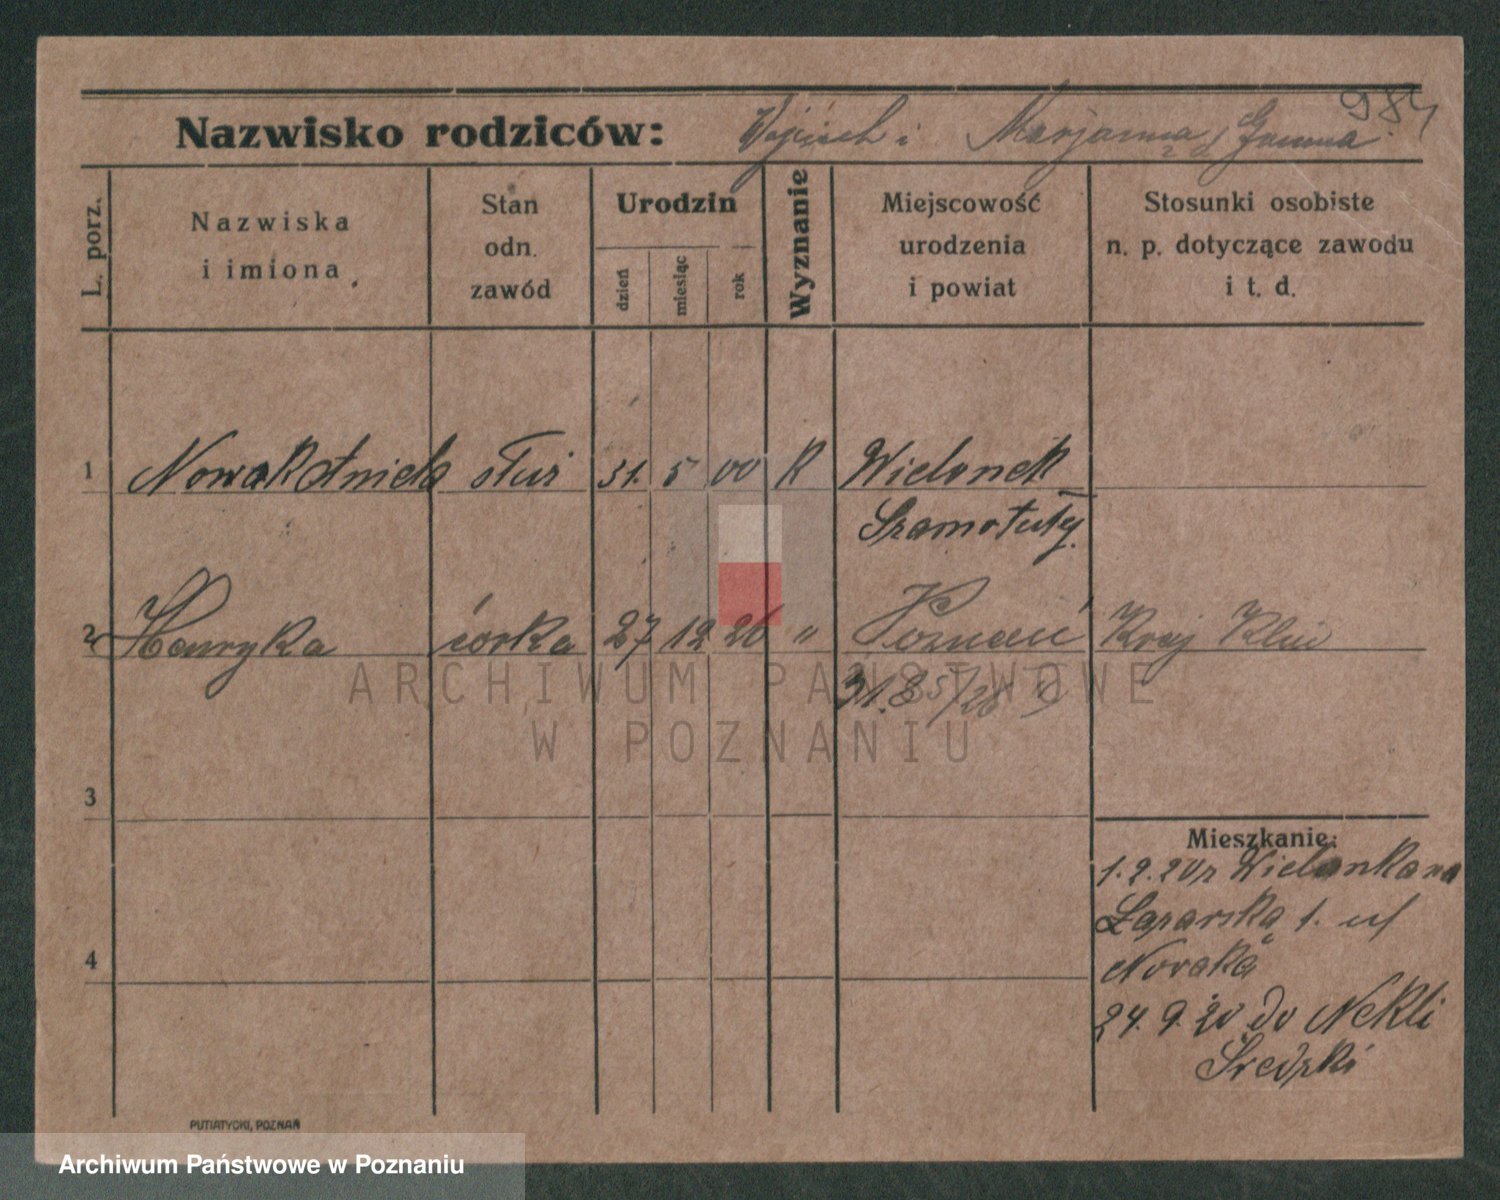 984
Nazwisko rodziców: Wojciech i Marjanna
L. porz.
Nazwiska
i imiona
Stan
odn.
zawód
Urodzin
dzień
miesiąc
rok
Wyznanie
Miejscowość
urodzenia
i powiat
Stosunki osobiste
n. p. dotyczące zawodu
i t. d.
1 Nowak Aniela służ 31. 5 00 R Wielonek
Szamotuły
2 Henryka córka 27 12 26 " Poznań Kraj
31. 8
3
Mieszkanie:
1.9.20 z Wielonka na
Łazarska 1. u
Nowaka
4
24.9.20 do Nekli
Średzki
PUTIATYCKI, POZNAŃ
ARCHIWUM PAŃSTWOWE
W POZNANIU
Archiwum Państwowe w Poznaniu